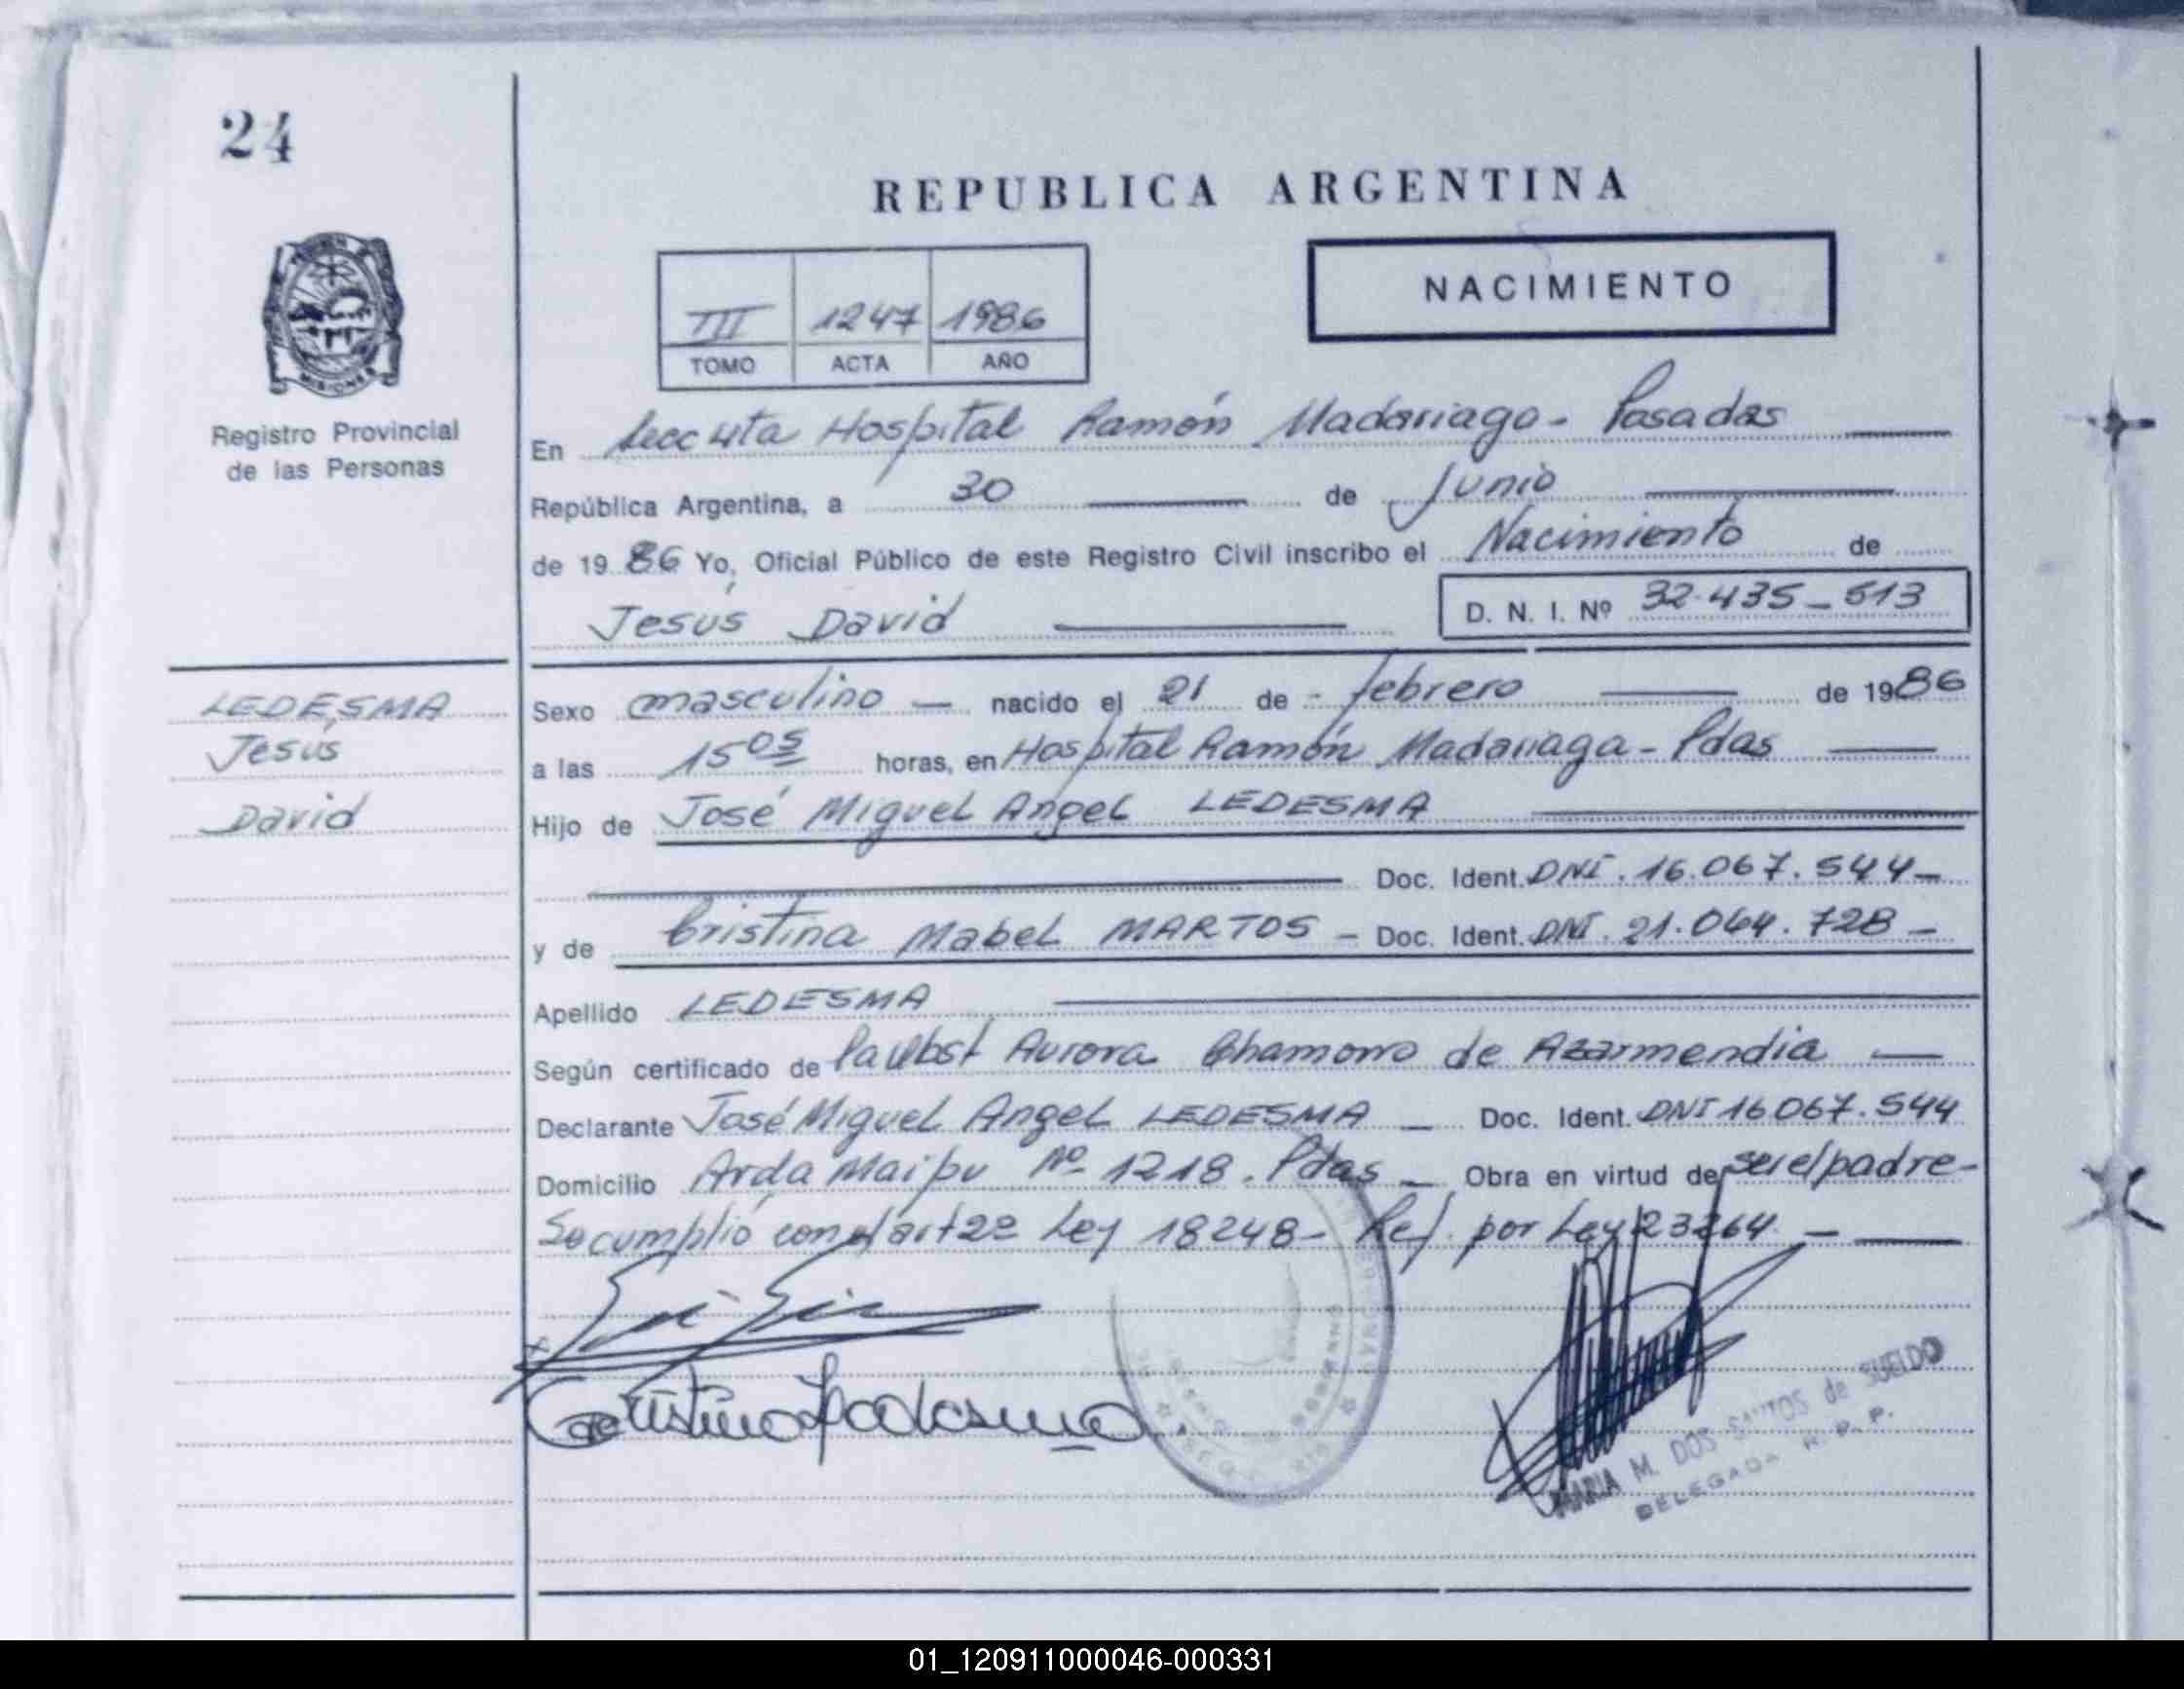 24
REPUBLICA ARGENTINA
NACIMIENTO
III 1247 1986
TOMO ACTA AÑO
MISIONES
Registro Provincial
de las Personas
En Secc 4ta Hospital Ramón Madariaga - Posadas
República Argentina, a 30 de Junio
de 1986 Yo, Oficial Público de este Registro Civil inscribo el Nacimiento de
Jesús David D. N. I. Nº 32.435_513
LEDESMA
Jesús
David
Sexo masculino — nacido el 21 de - febrero de 1986
a las 15 05 horas, en Hospital Ramón Madariaga - Pdas
Hijo de José Miguel Angel LEDESMA
Doc. Ident. DNI. 16.067.544-
y de Cristina Mabel MARTOS - Doc. Ident. DNI. 21.064.728 -
Apellido LEDESMA
Según certificado de Aurora Chamorro de Azarmendia
Declarante José Miguel Angel LEDESMA — Doc. Ident. DNI 16.067.544
Domicilio Avda Maipu Nº 1218. Pdas — Obra en virtud de ser el padre-
Se cumplió con el art 2º Ley 18248- Ref. por Ley 23264 -
Cristina Ledesma
MARIA M. DOS SANTOS de SUELDO
DELEGADA R. P. P.
01_120911000046-000331